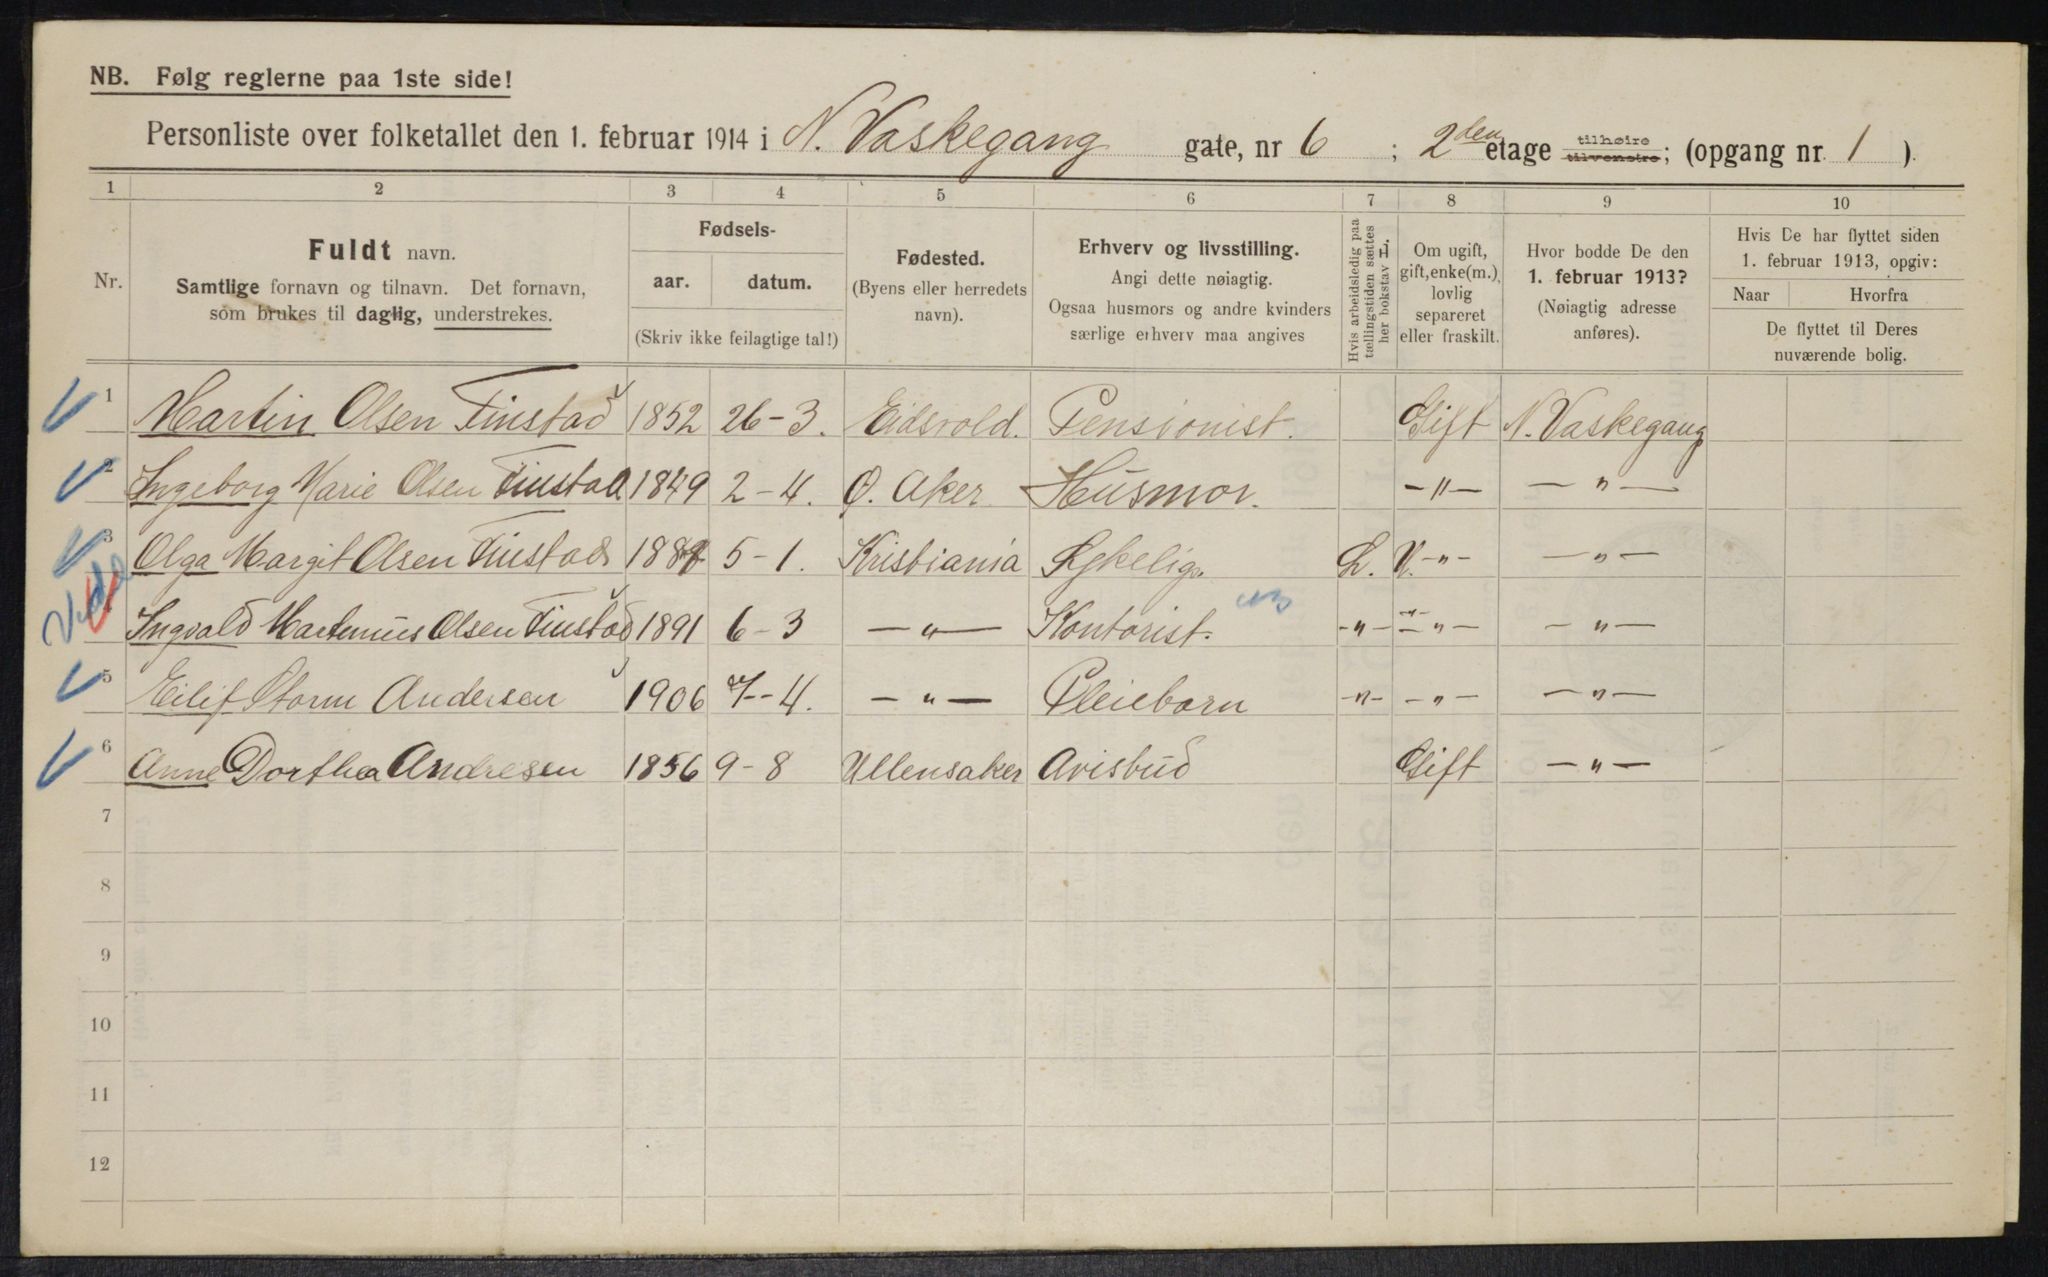 NB. Følg reglerne paa 1ste side!
Personliste over folketallet den 1. februar 1914 i N. Vaskegang gate, nr 6 ; 2den etage tilhøire tilvenstre; (opgang nr. 1 ).
1 2 3 4 5 6 7 8 9 10
Nr.
Fuldt navn.
Samtlige fornavn og tilnavn. Det fornavn,
som brukes til daglig, understrekes.
Fødsels-
aar. datum.
(Skriv ikke feilagtige tal!)
Fødested.
(Byens eller herredets
navn).
Erhverv og livsstilling.
Angi dette nøiagtig.
Ogsaa husmors og andre kvinders
særlige erhverv maa angives
Hvis arbeidsledig paa
tællingstiden sættes
her bokstav L.
Om ugift,
gift, enke(m.),
lovlig
separeret
eller fraskilt.
Hvor bodde De den
1. februar 1913?
(Nøiagtig adresse
anføres).
Hvis De har flyttet siden
1. februar 1913, opgiv:
Naar Hvorfra
De flyttet til Deres
nuværende bolig.
1 Martin Olsen Finstad 1852 26-3. Eidsvold. Pensionist. Gift N. Vaskegang
2 Ingeborg Marie Olsen Finstad 1849 2-4. Ø. Aker Husmor. -"- -"-
3 Olga Margit Olsen Finstad 5-1. Kristiania L. U. -"- -"-
Ingvald Martinius Olsen Finstad 1891 6-3 -"- Kontorist. -"- -"- -"-
5 Eilif Storm Andersen 1906 7-4. -"- Pleiebarn -"- -"- -"-
6 Anne Dorthea Andresen 1856 9-8 Ullensaker Avisbud Gift -"-
7
8
9
10
11
12